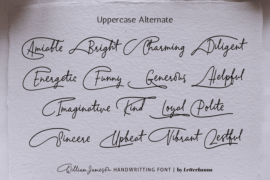 Uppercase Alternate
Amiable Bright Charming Diligent
Energetic Funny Generous Helpful
Imaginative Kind Loyal Polite
Sincere Upbeat Vibrant Zestful
William James HANDWRITTING FONT | by Letterhanna